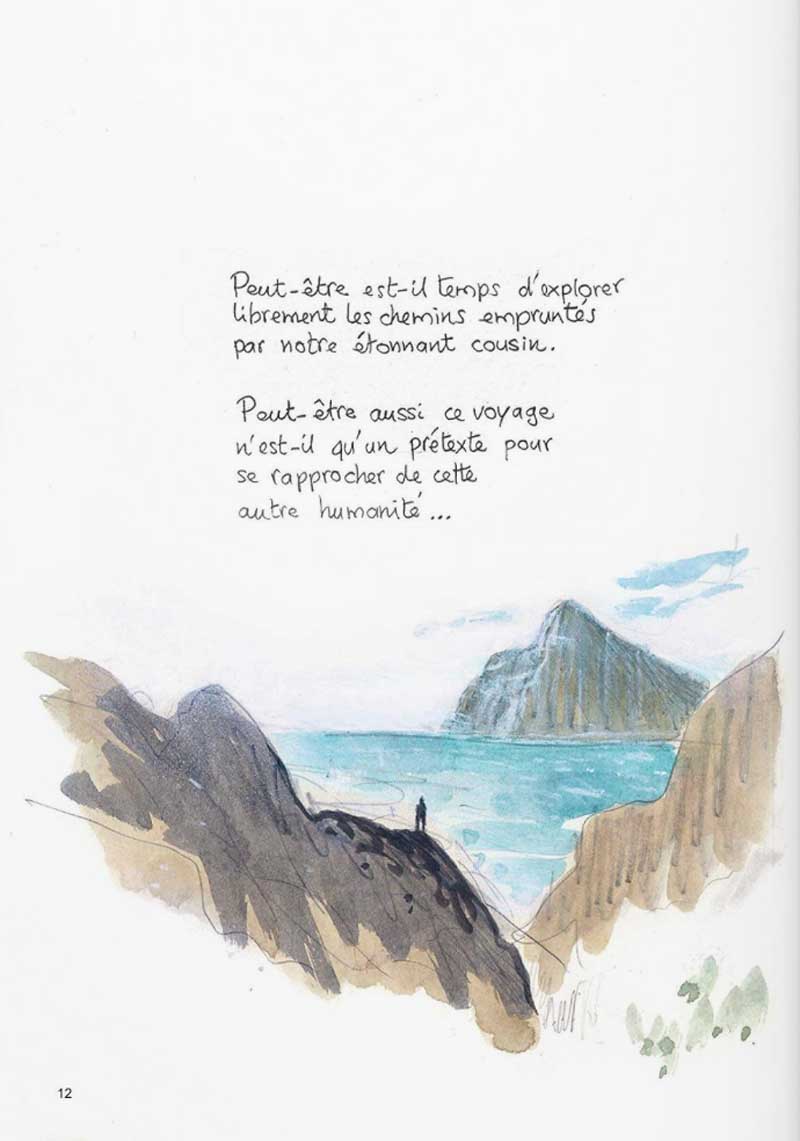 Peut-être est-il temps d'explorer
librement les chemins empruntés
par notre étonnant cousin.
Peut-être aussi ce voyage
n'est-il qu'un prétexte pour
se rapprocher de cette
autre humanité...
12